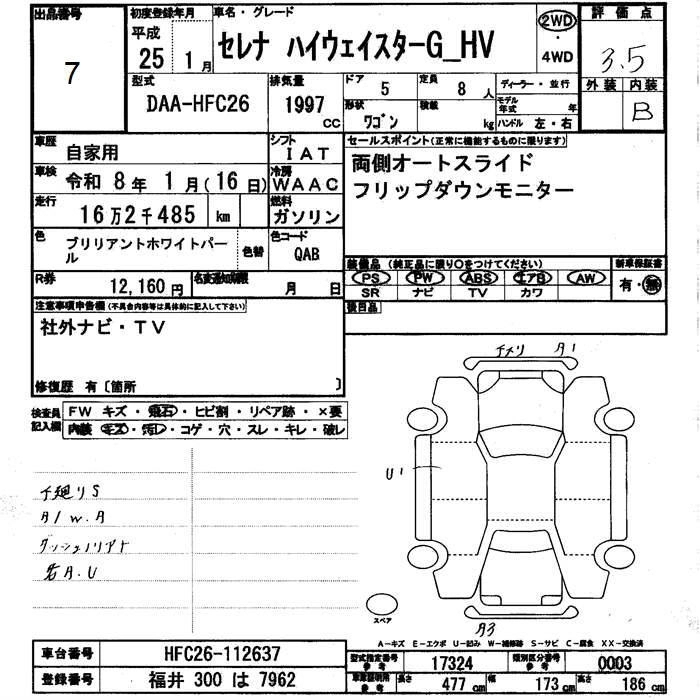 出品番号
7
初度登録年月
平成
25 1月
車名・グレード
セレナ ハイウェイスターG_HV
2WD
・
4WD
評価点
3.5
外装 内装
B
型式
DAA-HFC26
排気量
1997
CC
ドア
5
定員
8人
形状
ワゴン
積載
kg
ディーラー・並行
モデル年式 年
ハンドル 左・右
車歴
自家用
シフト
IAT
車検
令和 8年 1月(16日)
冷房
WAAC
走行
16万2千485 km
燃料
ガソリン
色
ブリリアントホワイトパール
色替
色コード
QAB
R券
12,160円
名変通知期限
月 日
セールスポイント(正常に機能するものに限ります)
両側オートスライド
フリップダウンモニター
装備品(純正品に限り〇をつけてください)
PS PW ABS エアB AW
SR ナビ TV カワ
新車保証書
有・無
後日品
注意事項申告欄(不具合内容等は具体的に記入して下さい)
社外ナビ・TV
修復歴 有〔箇所 〕
検査員記入欄
FW キズ・飛石・ヒビ割・リペア跡・×要
内装 キズ・汚レ・コゲ・穴・スレ・キレ・破レ
下廻りS
A/W.A
各A.U
チメリ A1
U1
A3
スペア
A-キズ E-エクボ U-凹み W-補修跡 S-サビ C-腐食 XX-交換済
車台番号
HFC26-112637
登録番号
福井 300 は 7962
型式指定番号
参考
17324
類別区分番号
参考
0003
車庫証明用
参考
長さ
477cm
幅
173cm
高さ
186cm